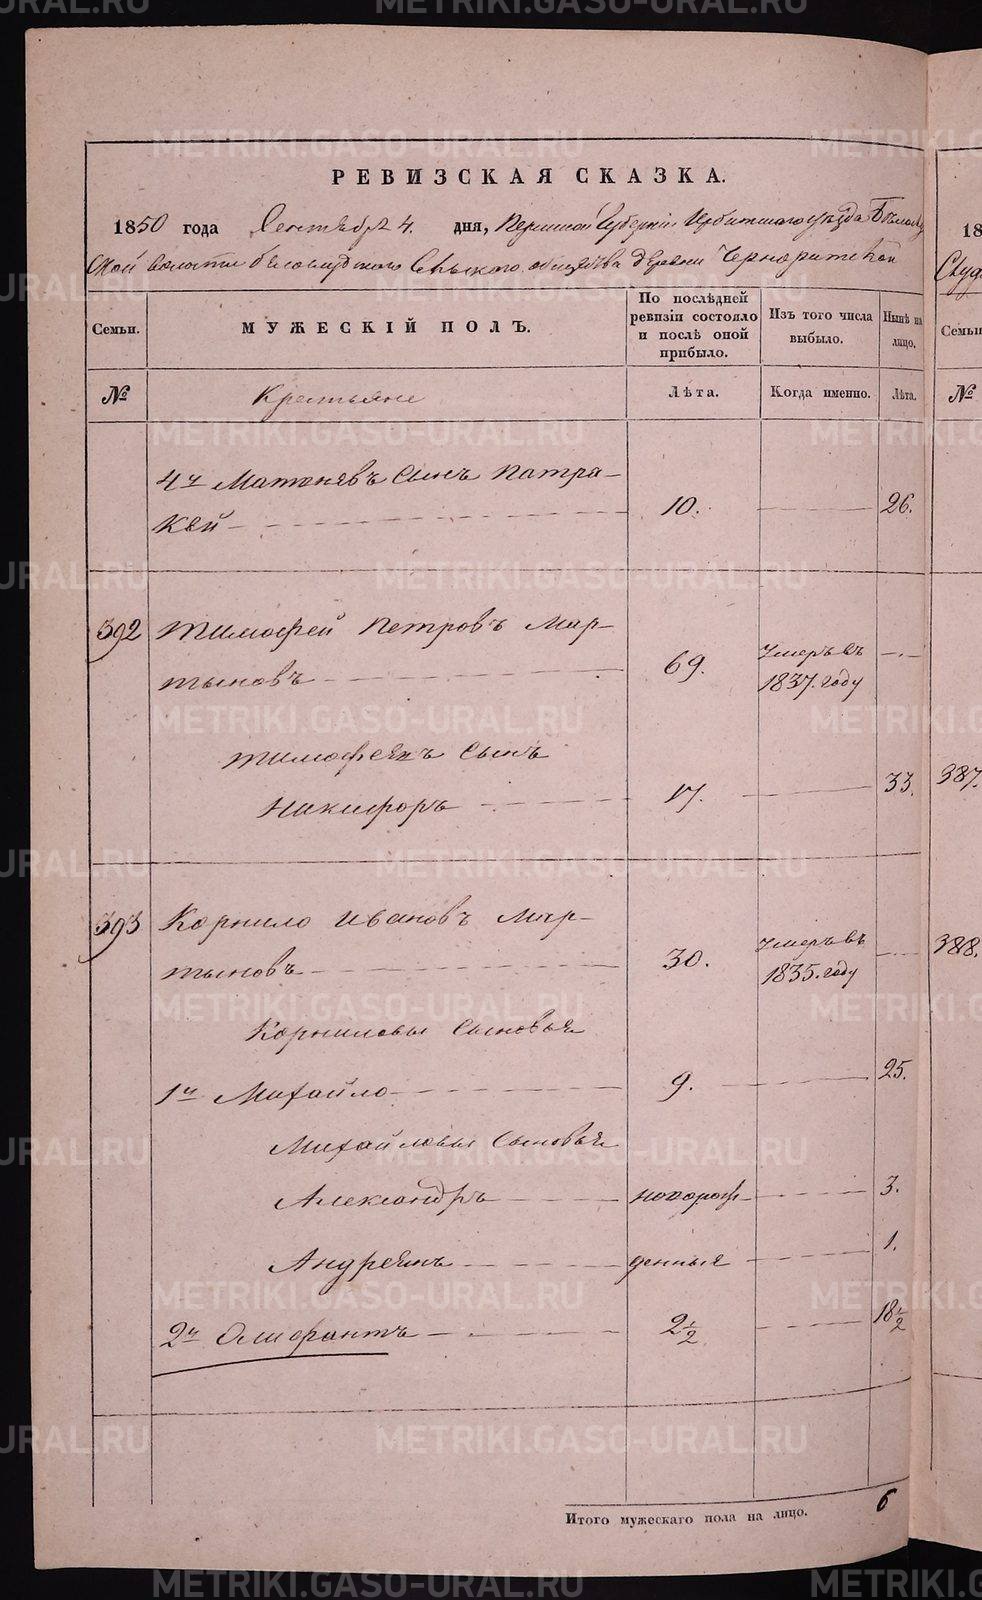 METRIKI.GASO-URAL.RU
РЕВИЗСКАЯ СКАЗКА.
1850 года Сентября 4. дня, Пермской Губернии Ирбитскаго уезда Белослуд
ской волости белослудскаго Сельскаго общества деревни Чернорицкой
Семьи. МУЖЕСКІЙ ПОЛЪ. По послѣдней ревизіи состояло и послѣ оной прибыло. Изъ того числа выбыло. Нынѣ на лицо.
№ Крестьяне Лѣта. Когда именно. Лѣта.
4й Матвеевъ Сынъ Патра-
кей 10. 26.
392 Тимофей Петровъ Мар-
тыновъ 69. Умеръ въ 1837. году
Тимофеевъ Сынъ
Никифоръ 17. 33.
393 Корнило Ивановъ Мар-
тыновъ 30. Умеръ въ 1835. году
Корниловы Сыновья
1й Михайло 9. 25.
Михайловы Сыновья
Александръ новорож- 3.
Андреянъ денные 1.
2й Олифантъ 2½ 18½
Итого мужескаго пола на лицо. 6
18
Семьи
№
387.
388.